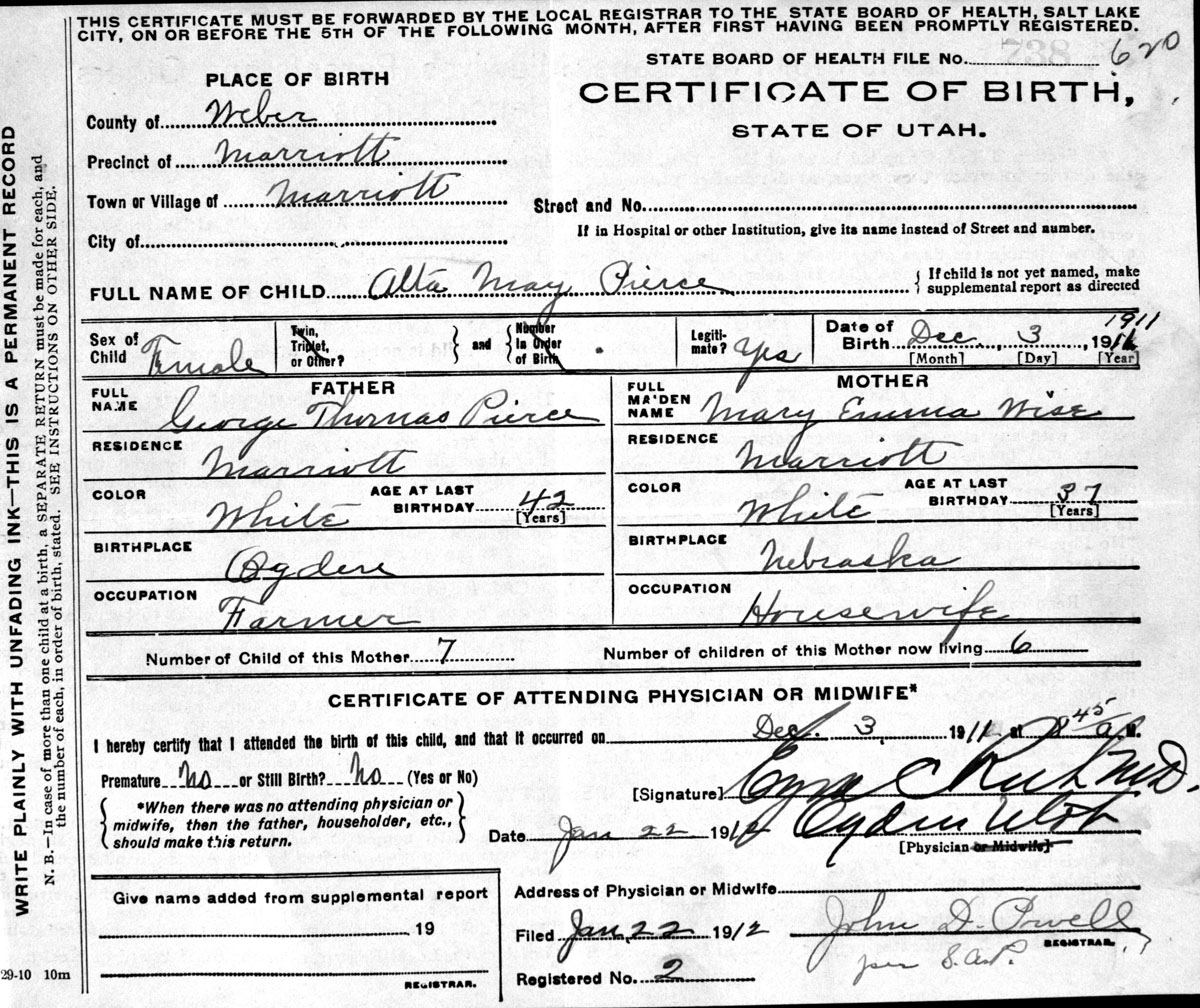 THIS CERTIFICATE MUST BE FORWARDED BY THE LOCAL REGISTRAR TO THE STATE BOARD OF HEALTH, SALT LAKE
CITY, ON OR BEFORE THE 5TH OF THE FOLLOWING MONTH, AFTER FIRST HAVING BEEN PROMPTLY REGISTERED.
WRITE PLAINLY WITH UNFADING INK—THIS IS A PERMANENT RECORD
N. B.—In case of more than one child at a birth, a SEPARATE RETURN must be made for each, and
the number of each, in order of birth, stated. SEE INSTRUCTIONS ON OTHER SIDE.
STATE BOARD OF HEALTH FILE No. 620
PLACE OF BIRTH
CERTIFICATE OF BIRTH,
STATE OF UTAH.
County of Weber
Precinct of Marriott
Town or Village of Marriott
Street and No.
City of
If in Hospital or other Institution, give its name instead of Street and number.
FULL NAME OF CHILD Alta May Pierce
If child is not yet named, make
supplemental report as directed
Sex of Child Female
Twin, Triplet, or Other?
and
Number in Order of Birth
Legitimate? Yes
Date of Birth Dec. 3, 1911
[Month] [Day] [Year]
FATHER
FULL NAME George Thomas Pierce
RESIDENCE Marriott
COLOR White
AGE AT LAST BIRTHDAY 42
[Years]
BIRTHPLACE Ogden
OCCUPATION Farmer
MOTHER
FULL MAIDEN NAME Mary Emma Wise
RESIDENCE Marriott
COLOR White
AGE AT LAST BIRTHDAY 37
[Years]
BIRTHPLACE Nebraska
OCCUPATION Housewife
Number of Child of this Mother 7
Number of children of this Mother now living 6
CERTIFICATE OF ATTENDING PHYSICIAN OR MIDWIFE*
I hereby certify that I attended the birth of this child, and that it occurred on Dec. 3, 191 at 8 45 a. M.
Premature No or Still Birth? No (Yes or No)
[Signature] Ezra C Rich M.D.
*When there was no attending physician or
midwife, then the father, householder, etc.,
should make this return.
Date Jan 22 1912 Ogden Utah
[Physician or Midwife]
Give name added from supplemental report
19
REGISTRAR.
Address of Physician or Midwife
Filed Jan. 22 1912 John D. Powell
REGISTRAR.
per S.A.P.
Registered No. 2
29-10 10m